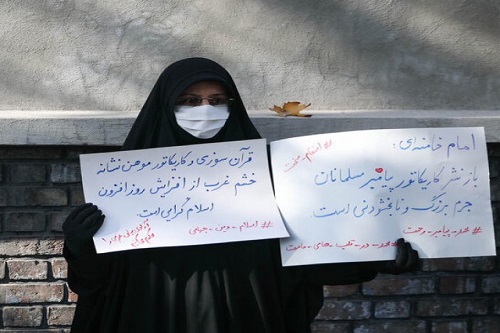 قرآن سوزی و کاریکاتور موهن نشانه
خشم غرب از افزایش روزافزون
اسلام گرایی است.
#اسلام_دین_جهانی
امام خامنه‌ای:
#انتقام_سخت
بازنشر کاریکاتور پیامبر مسلمانان
جرم بزرگ و نابخشودنی است.
#محمد_پیامبر_رحمت
#محمد_در_قلب_های_ماست